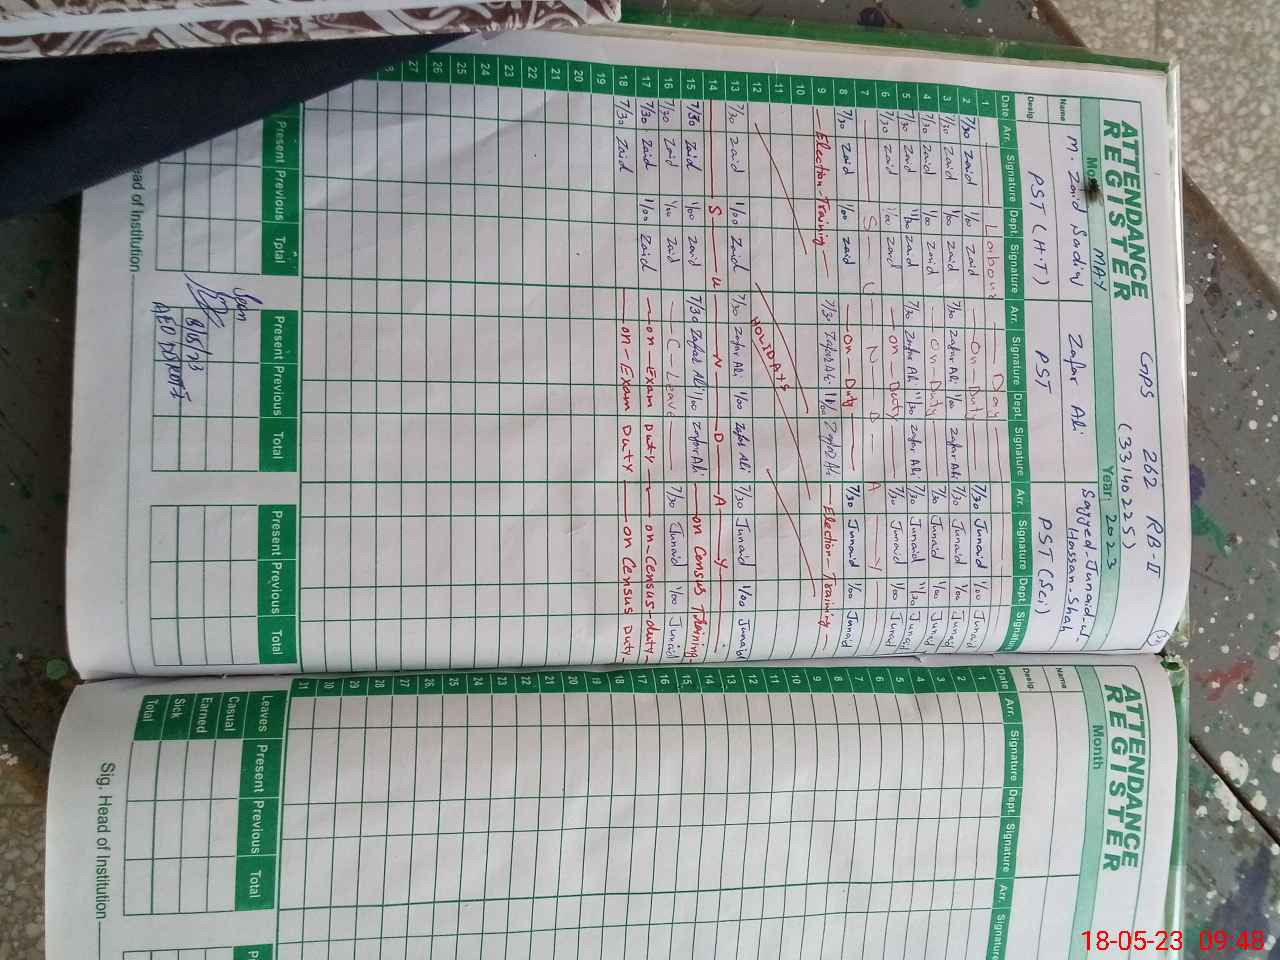 ATTENDANCE REGISTER
GPS 262 RB-II
(33140225)
Month MAY Year: 2023
Name M. Zaid Sadiq Zafar Ali Sayyed-Junaid-ul-Hassan-Shah
Desig. PST (H.T) PST PST (Sci)
Date Arr. Signature Dept. Signature Arr. Signature Dept. Signature Arr. Signature Dept. Signature
1 Labour Day 7/30 Junaid 1/00 Junaid
2 7/30 Zaid 1/00 Zaid -On-Duty 7/30 Junaid 1/00 Junaid
3 7/30 Zaid 1/00 Zaid 7/30 Zafar Ali 1/00 Zafar Ali 7/30 Junaid 1/00 Junaid
4 7/30 Zaid 1/00 Zaid -On-Duty 7/30 Junaid 1/00 Junaid
5 7/30 Zaid 11/30 Zaid 7/30 Zafar Ali 11/30 Zafar Ali 7/30 Junaid 11/30 Junaid
6 7/30 Zaid 1/00 Zaid -on-Duty 7/30 Junaid 1/00 Junaid
7 S U N D A Y
8 7/30 Zaid 1/00 Zaid -on-Duty 7/30 Junaid 1/00 Junaid
9 -Election-Training- 7/30 Zafar Ali 1/00 Zafar Ali -Election-Training-
10
11 HOLIDAYS
12
13 7/30 Zaid 1/00 Zaid 7/30 Zafar Ali 1/00 Zafar Ali 7/30 Junaid 1/00 Junaid
14 S U N D A Y
15 7/30 Zaid 1/00 Zaid 7/30 Zafar Ali 1/00 Zafar Ali -on Census Training-
16 7/30 Zaid 1/00 Zaid -C-Leave 7/30 Junaid 1/00 Junaid
17 7/30 Zaid 1/00 Zaid -on-Exam Duty- on-Census-duty-
18 7/30 Zaid -on-Exam Duty- on Census Duty-
19
20
21
22
23
24
25
26
27
Present Previous Total Present Previous Total Present Previous Total
18/05/23
ead of Institution
ATTENDANCE REGISTER
Month
Name
Desig.
Date Arr. Signature Dept. Signature Arr. Signature
1
2
3
4
5
6
7
8
9
10
11
12
13
14
15
16
17
18
19
20
21
22
23
24
25
26
27
28
29
30
31
Leaves Present Previous Total
Casual
Earned
Sick
Total
Sig. Head of Institution
18-05-23 09:48